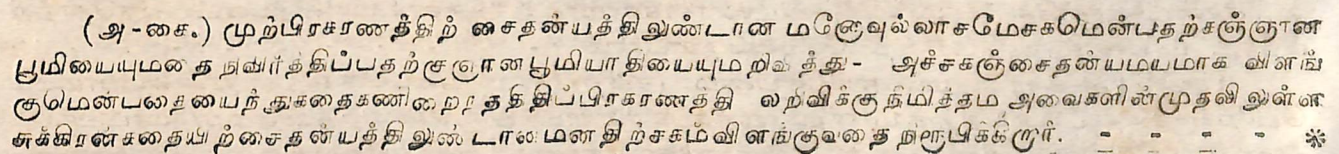 (அ-சை.) முற்பிரகரணத்திற் சைதன்யத்திலுண்டான மனோவுல்லாசமேசகமென்பதற்கஞ்ஞான
பூமியையுமதை நிவர்த்திப்பதற்குஞானபூமியாதியையுமறிவித்து- அச்சகஞ்சைதன்யமயமாக விளங்
குமென்பதையைந்துகதைகளினற்றிதிப்பிரகரணத்தி லறிவிக்குநிமித்தம் அவைகளின்முதலிலுள்ள
சுக்கிரன்கதையிற்சைதன்யத்திலுண்டானமனதிற்சகம்விளங்குவதை நிரூபிக்கிறார். - - - - *